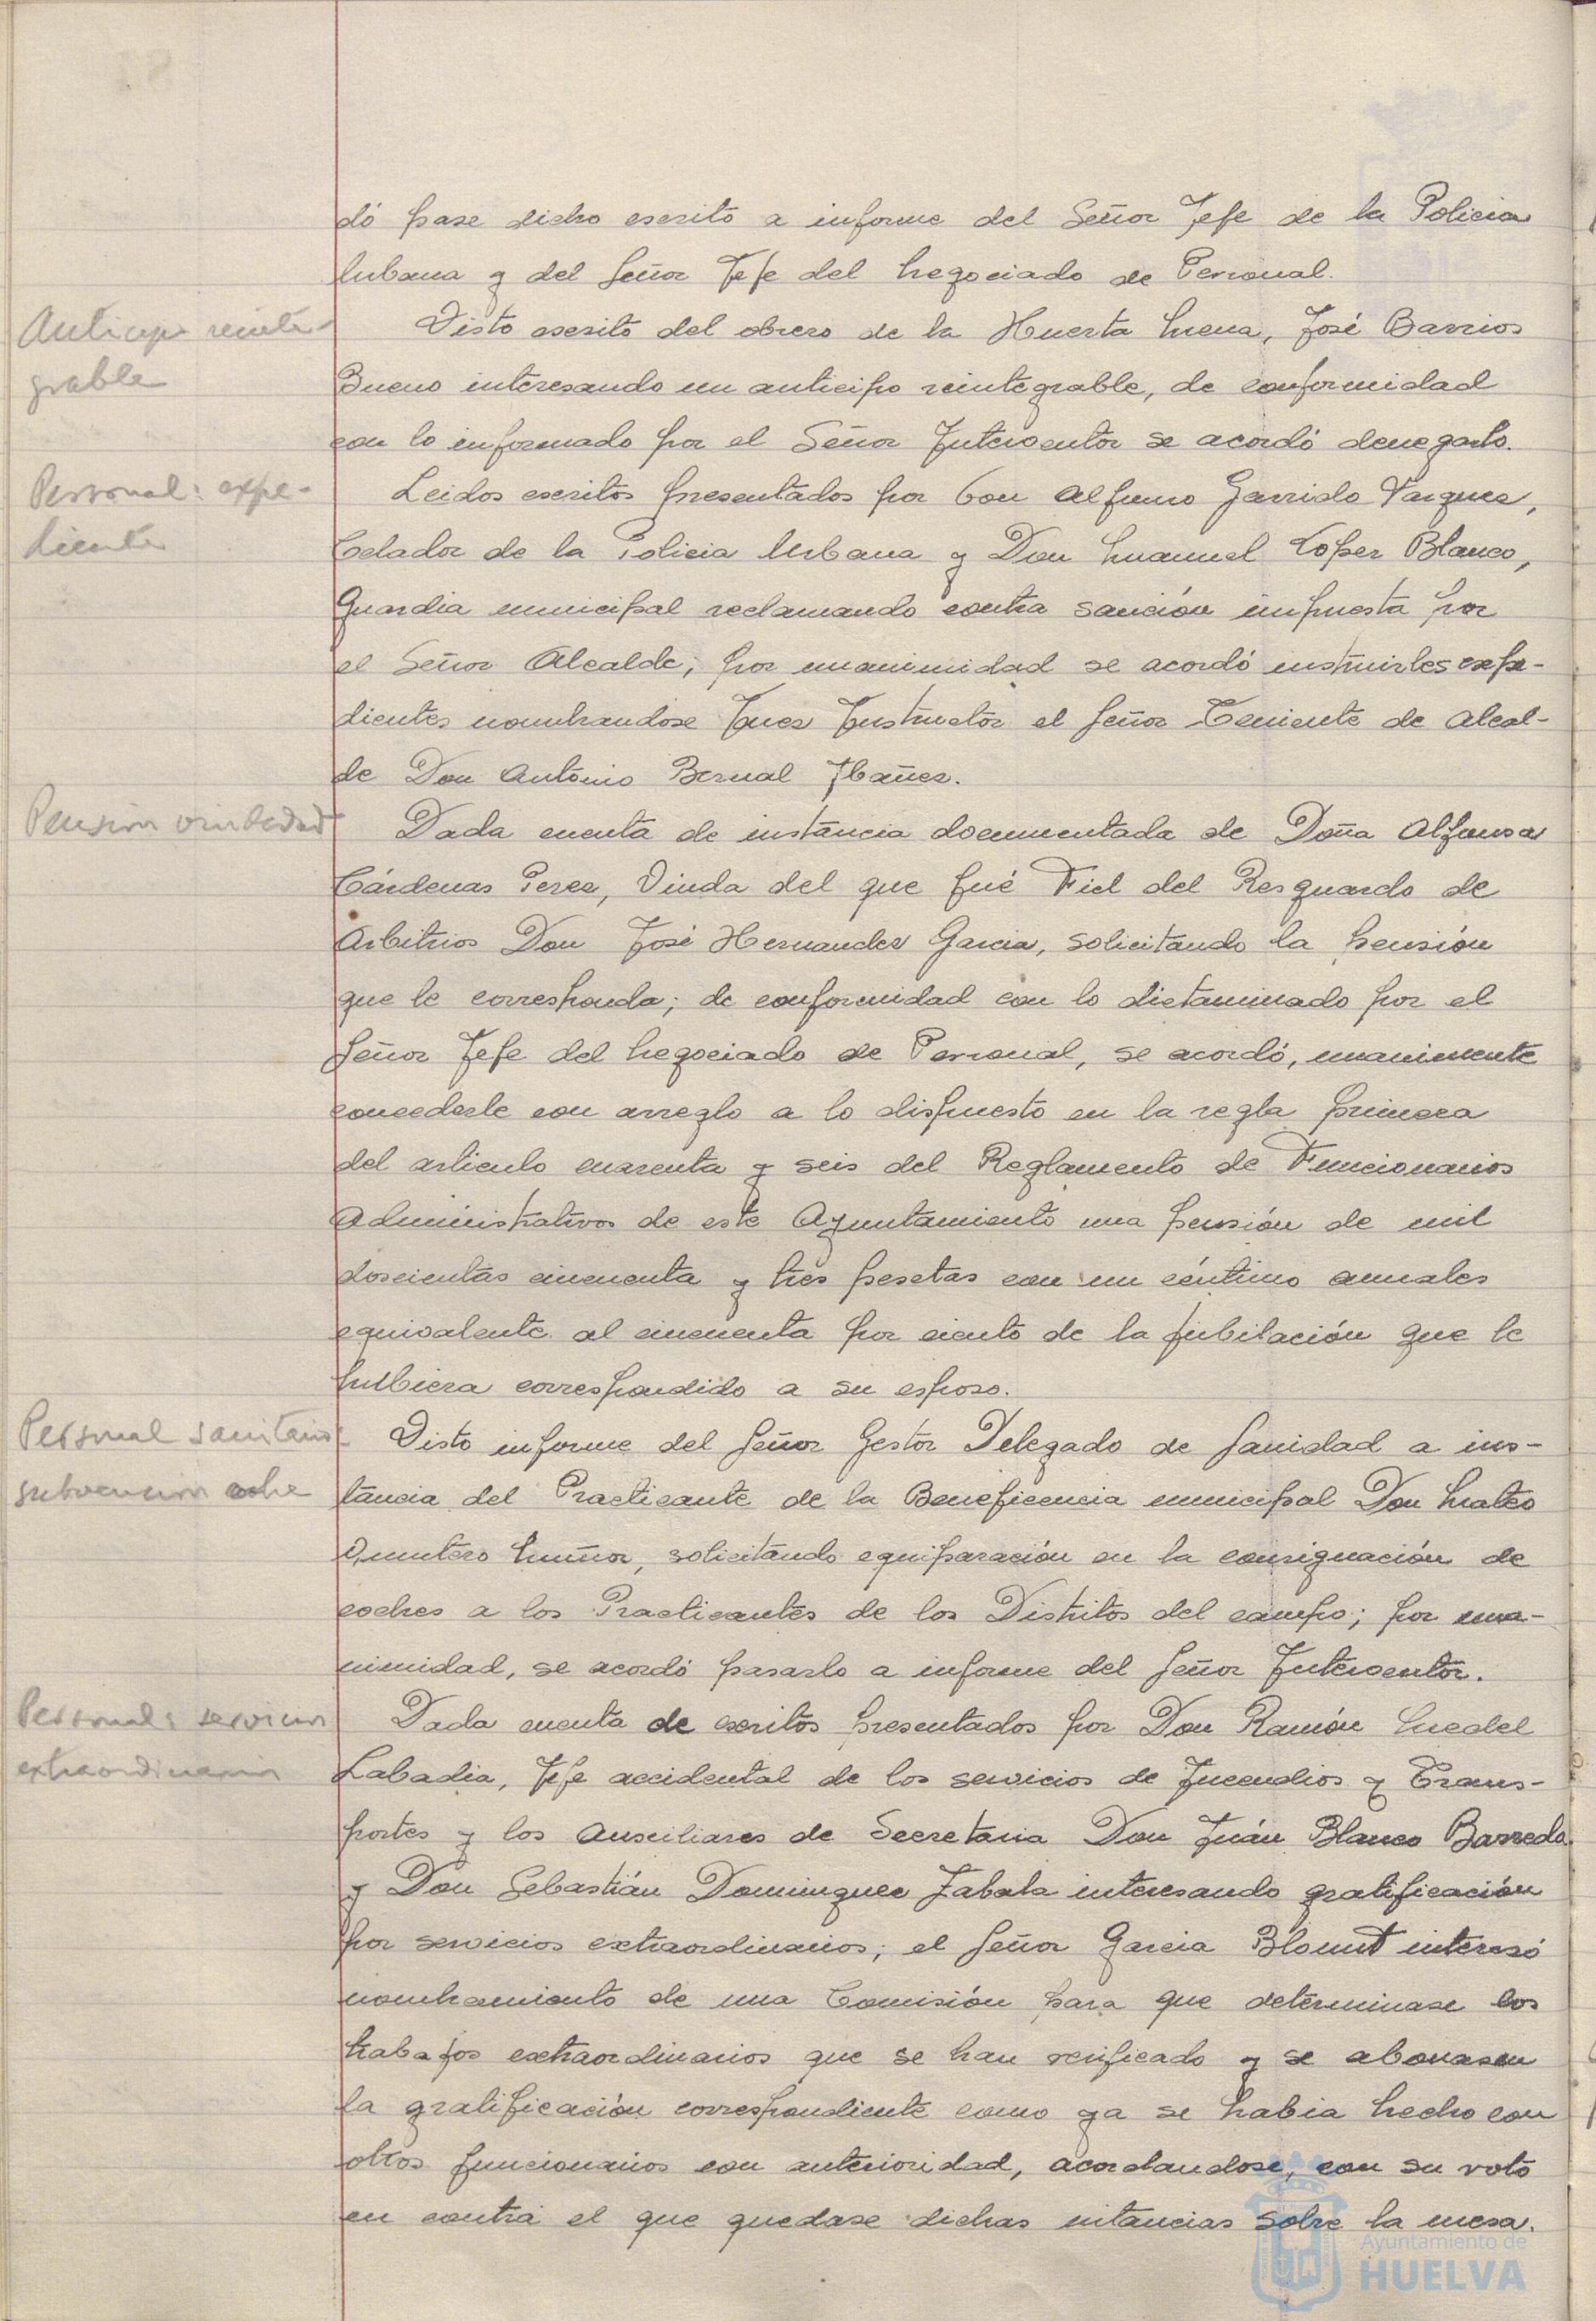 dó pase dicho escrito a informe del Señor Jefe de la Policia
Urbana y del Señor Jefe del Negociado de Personal.
Anticipo reinte-
grable
Visto escrito del obrero de la Huerta Mena, José Barrios
Bueno interesando un anticipo reintegrable, de conformidad
con lo informado por el Señor Interventor se acordó denegarlo.
Personal: expe-
diente
Leidos escritos presentados por Don Alfonso Garrido Vazquez,
Celador de la Policia Urbana y Don Manuel López Blanco,
Guardia municipal reclamando contra sanción impuesta por
el Señor Alcalde; por unanimidad se acordó instruirles expe-
dientes nombrandose Juez Instructor el Señor Teniente de Alcal-
de Don Antonio Bernal Ibañez.
Pensión viudedad
Dada cuenta de instancia documentada de Doña Alfonsa
Cárdenas Perez, Viuda del que fué Fiel del Resguardo de
Arbitrios Don José Hernandez Garcia, solicitando la pensión
que le corresponda; de conformidad con lo dictaminado por el
Señor Jefe del Negociado de Personal, se acordó, unanimente
concederle con arreglo a lo dispuesto en la regla primera
del articulo cuarenta y seis del Reglamento de Funcionarios
Administrativos de este Ayuntamiento una pensión de mil
doscientas cincuenta y tres pesetas con un céntimo anuales
equivalente al cincuenta por ciento de la jubilación que le
hubiera correspondido a su esposo.
Personal sanitario
subvencion coche
Visto informe del Señor Gestor Delegado de Sanidad a ins-
tancia del Practicante de la Beneficencia municipal Don Mateo
Quintero Muñoz, solicitando equiparación en la consignación de
coches a los Practicantes de los Distritos del campo; por una-
nimidad, se acordó pasarlo a informe del Señor Interventor.
Personal: servicios
extraordinarios
Dada cuenta de escritos presentados por Don Ramón Muedel
Labadia, Jefe accidental de los servicios de Incendios y Trans-
portes y los Auxiliares de Secretaria Don Juán Blanco Barreda
y Don Sebastián Dominguez Zabala interesando gratificación
por servicios extraordinarios; el Señor Garcia Blount interesó
nombramiento de una Comisión para que determinase los
trabajos extraordinarios que se han verificado y se abonasen
la gratificación correspondiente como ya se habia hecho con
otros funcionarios con anterioridad, acordandose, con su voto
en contra el que quedase dichas intancias sobre la mesa.
Ayuntamiento de
HUELVA